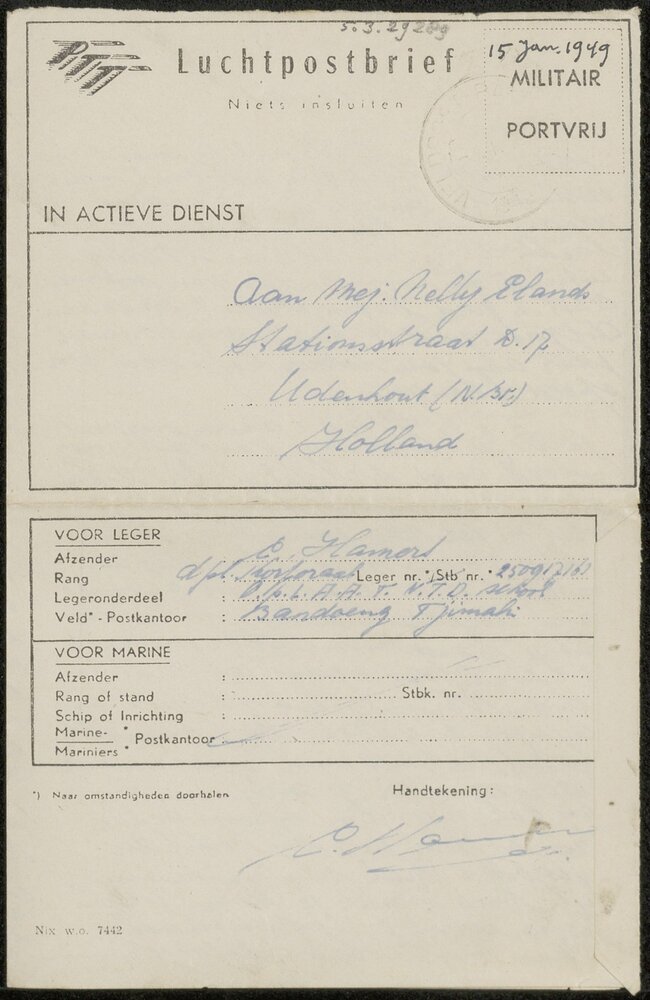 5.3.29209
PTT
Luchtpostbrief
15 Jan. 1949
Niets insluiten
MILITAIR
PORTVRIJ
IN ACTIEVE DIENST
Aan Mej. Nelly Elands
Stationsstraat D. 17
Udenhout (N. Br.)
Holland
VOOR LEGER
Afzender C. Hamers
Rang dpl. Korporaal Leger nr. */Stb nr. *
Legeronderdeel : A.A.T. V.T.D. school
Veld* - Postkantoor : Bandoeng Tjimahi
VOOR MARINE
Afzender :
Rang of stand : Stbk. nr.
Schip of Inrichting :
Marine- * Postkantoor
Mariniers *
*) Naar omstandigheden doorhalen
Handtekening:
C. Hamers
Nix w.o. 7442